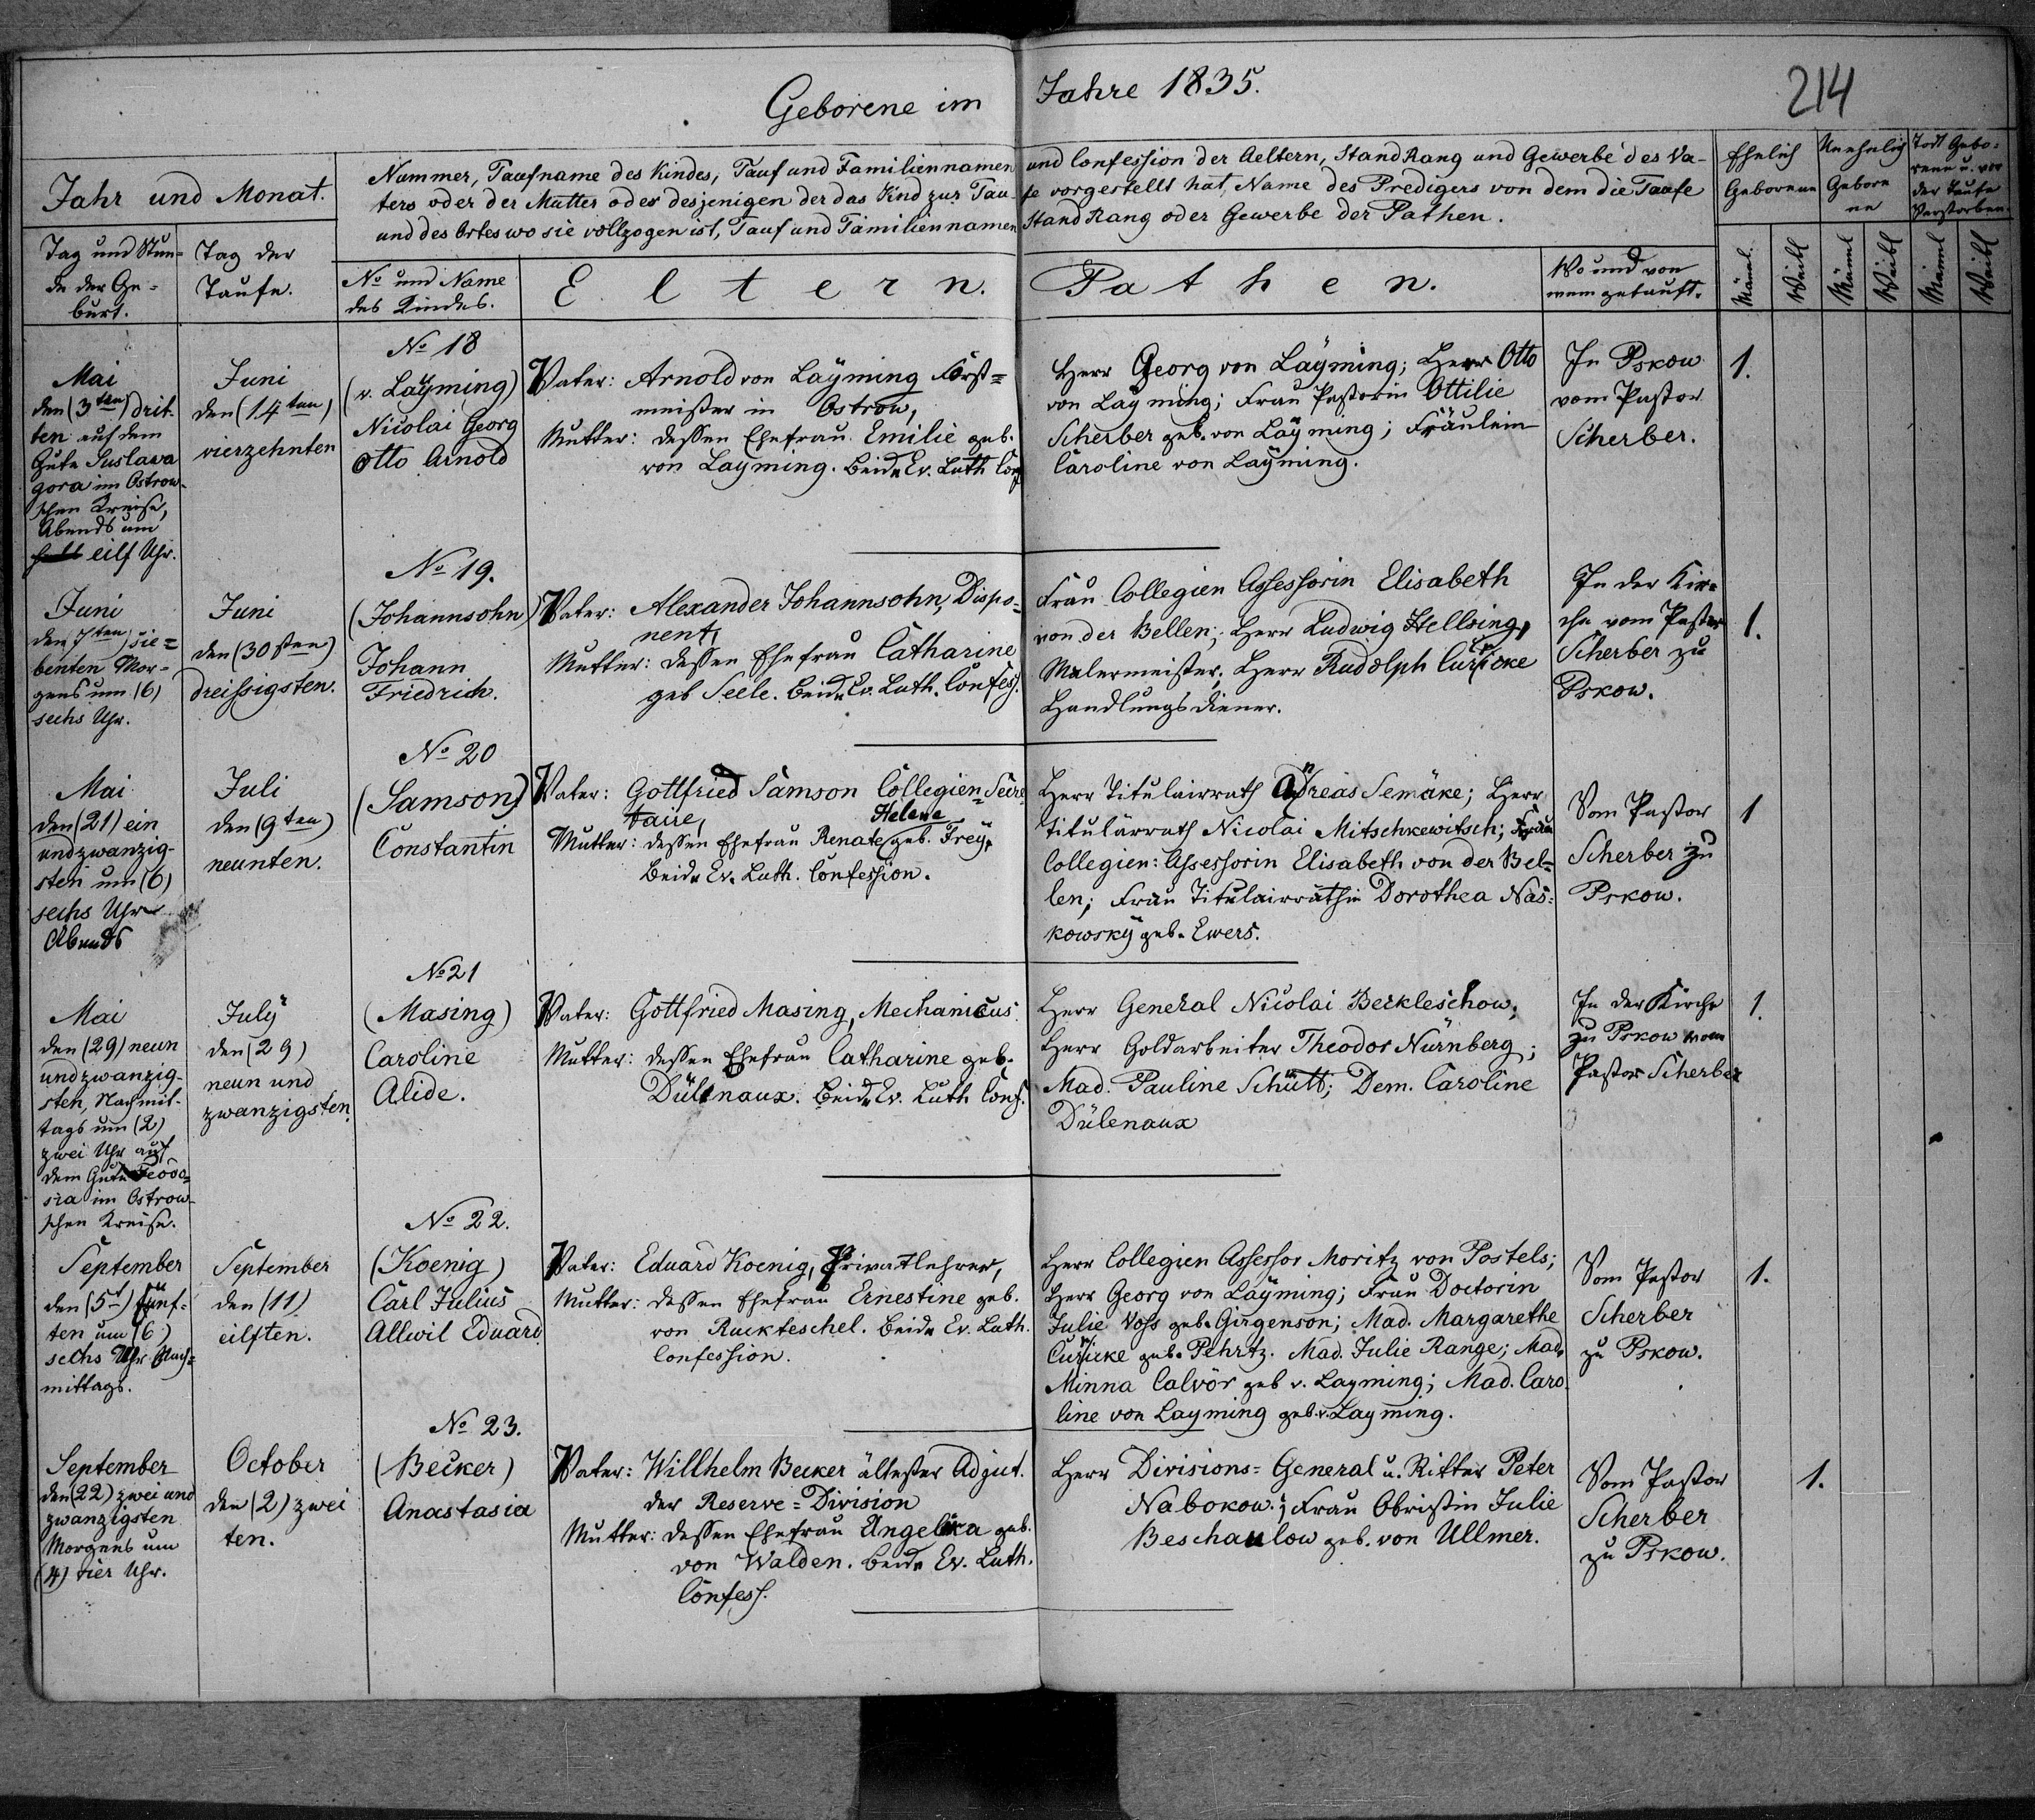 Geborene im Jahre 1835.
214
Jahr und Monat.
Tag und Stun-
de der Ge-
burt.
Tag der
Taufe.
Nummer, Taufname des Kindes, Tauf und Familiennamen und Confession der Aeltern, Stand Rang und Gewerbe des Va-
ters oder der Mutter oder desjenigen der das Kind zur Tau- fe vorgestellt hat, Name des Predigers von dem die Taufe
und des Ortes wo sie vollzogen ist, Tauf und Familiennamen Stand Rang oder Gewerbe der Pathen.
No und Name
des Kindes.
Eltern.
Pathen.
Wo und von
wem getauft.
Ehelich
Geborene
Unehelich
Gebore
ne
Todt Gebo-
rene u. vor
der Taufe
Verstorben.
Mänl.
Weibl
Mänl
Weibl
Mänl
Weibl
Mai
den (3ten) drit-
ten auf dem
Gute Suslawa
gora im Ostrow-
schen Kreise,
Abends um
halb eilf Uhr.
Juni
den (14ten)
vierzehnten
No 18
(v. Laÿming)
Nicolai Georg
Otto Arnold
Vater: Arnold von Laÿming Forst-
meister in Ostrow,
Mutter: dessen Ehefrau Emilie geb.
von Layming. beide Ev. Luth Conf
Herr Georg von Laÿming; Herr Otto
von Laÿming; Frau Pastorin Ottilie
Scherber geb. von Laÿming; Fräulein
Caroline von Laÿming.
In Pskow
vom Pastor
Scherber.
1.
Juni
den 7ten) sie-
benten Mor-
gens um (6)
sechs Uhr.
Juni
den (30sten)
dreissigsten.
No 19.
(Johannsohn)
Johann
Friedrich.
Vater: Alexander Johannsohn, Dispo-
nent,
Mutter: dessen Ehefrau Catharine
geb Seele. beide Ev. Luth. Confess.
Frau Collegien Assessorin Elisabeth
von der Bellen; Herr Ludwig Hellsing,
Malermeister; Herr Rudolph Curicke
Handlungsdiener.
In der Kir-
che vom Pastor
Scherber zu
Pskow.
1.
Mai
den (21) ein
und zwanzig-
sten um (6)
sechs Uhr
Abends
Juli
den (9ten)
neunten.
No 20
(Samson)
Constantin
Vater: Gottfried Samson Collegien-Secre-
taire,
Mutter: dessen Ehefrau Renate Helene geb. Freÿ,
beide Ev. Luth. Confession.
Herr Titulairrath Andreas Semäke; Herr
Titulärrath Nicolai Mitschkewitsch; Frau
Collegien: Assessorin Elisabeth von der Bel-
len; Frau Titulairräthin Dorothea Nas-
kowskÿ geb. Ewers.
Vom Pastor
Scherber zu
Pskow.
1
Mai
den (29) neun
und zwanzig-
sten, Nachmit-
tags um (2)
zwei Uhr auf
dem Gute Feodo-
sia im Ostrow-
schen Kreise.
Julÿ
den (29)
neun und
zwanzigsten
No 21
(Masing)
Caroline
Alide.
Vater: Gottfried Masing, Mechanicus.
Mutter: dessen Ehefrau Catharine geb.
Dülenaux. beide Ev. Luth Conf.
Herr General Nicolai Beckleschow;
Herr Goldarbeiter Theodor Nürnberg;
Mad. Pauline Schütt; Dem. Caroline
Dülenaux
In der Kirche
zu Pskow vom
Pastor Scherber
1.
September
den (5t) fünf-
ten um (6)
sechs Uhr Nach-
mittags.
September
den (11)
eilften.
No 22.
(Koenig)
Carl Julius
Allwil Eduard
Vater: Eduard Koenig, Privatlehrer,
Mutter: dessen Ehefrau Ernestine geb.
von Ruckteschel. beide Ev. Luth.
Confession.
Herr Collegien Assessor Moritz von Postels;
Herr Georg von Laÿming; Frau Doctorin
Julie Voss geb. Girgenson; Mad. Margarethe
Curicke geb. Pehrtz. Mad. Julie Range; Mad.
Minna Calvör geb v. Layming; Mad. Caro-
line von Layming geb. v. Layming.
Vom Pastor
Scherber
zu Pskow.
1.
September
den (22) zwei und
zwanzigsten
Morgens um
(4) vier Uhr.
October
den (2) zwei
ten.
No 23.
(Becker)
Anastasia
Vater: Willhelm Becker ältester Adjut.
der Reserve-Division
Mutter: dessen Ehefrau Angelika geb.
von Walden. beide Ev. Luth.
Confess.
Herr Divisions-General u. Ritter Peter
Nabokow; Frau Obristin Julie
Beschaulow geb. von Ullmer.
Vom Pastor
Scherber
zu Pskow.
1.